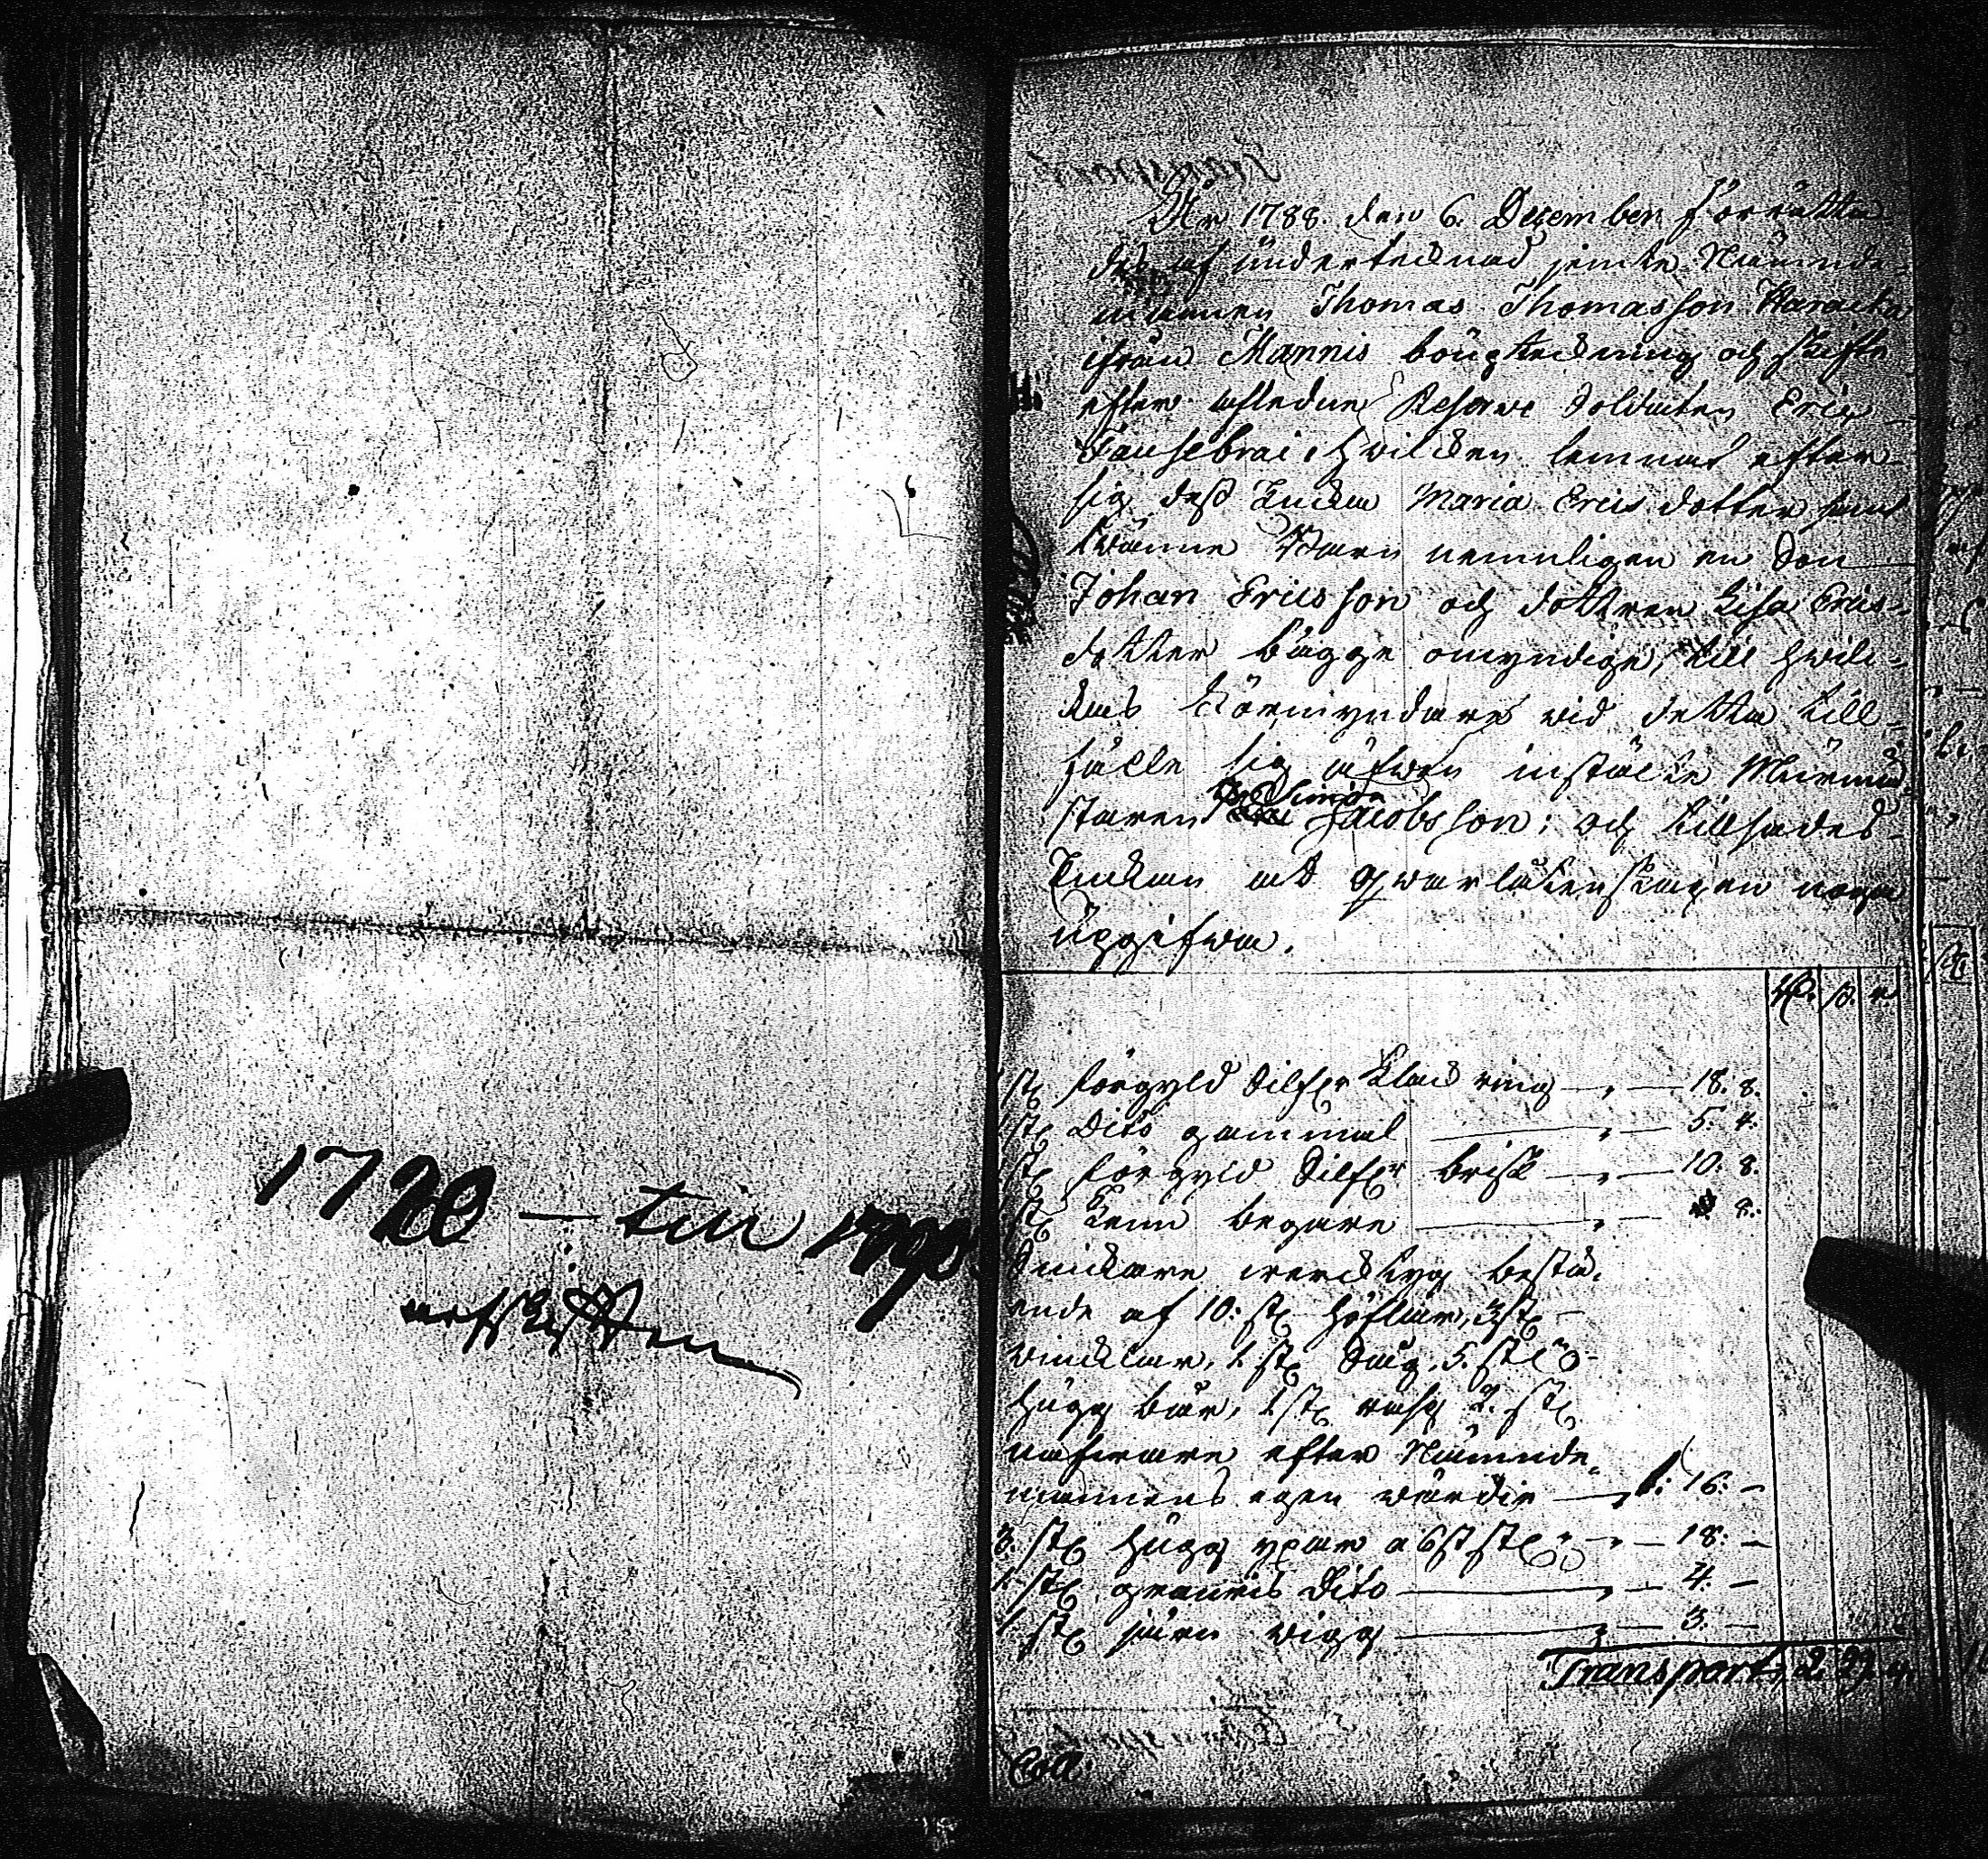 1720 — till 1790
År 1788. den 6. December förrätta
des af undertecknad jemte Nämnde-
mannen Thomas Thomasson
ifrån Mannis bouptekning och skifte
efter afledne Reserve Soldaten Eric
Fausebrai, hvilcken lemnat efter
sig dess Encka Maria Erics dotter samt
tvänne Barn nemligen en Son
Johan Ericsson och dottren Lisa Erics-
dotter bägge omyndige, till hvilc-
kas Förmyndare vid detta till-
fälle sig äfven instälte Mürmä-
staren Simon Jacobsson; och tillsades
Enckan at qvarlåtenskapen noga
upgifva.
R. s. r.
st förgyld Silfver klack ring — " — 18. 8.
1 st Dito gammal — " — 5. 4.
1 st förgyld Silfver brisk — " — 10. 8.
st Tenn begare — " — 8.
Snickare wercktyg bestå-
ende af 10: st höflar, 3 st
vincklar, 1 st Såg, 5. st
hugg bår, 1 st rasp 2. st
nafvare efter Nämnde-
mannens egen värdie — 1: 16: —
3. st hugg yxar a 6 s st " — 18: —
1 st. Dito — " — 4: —
1 st järn vigg — " — 3: —
Transport 2. 29. 4.